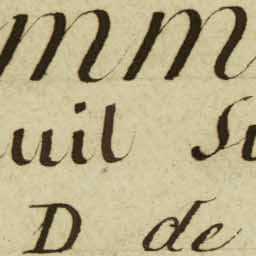 mm
uil Su
D de